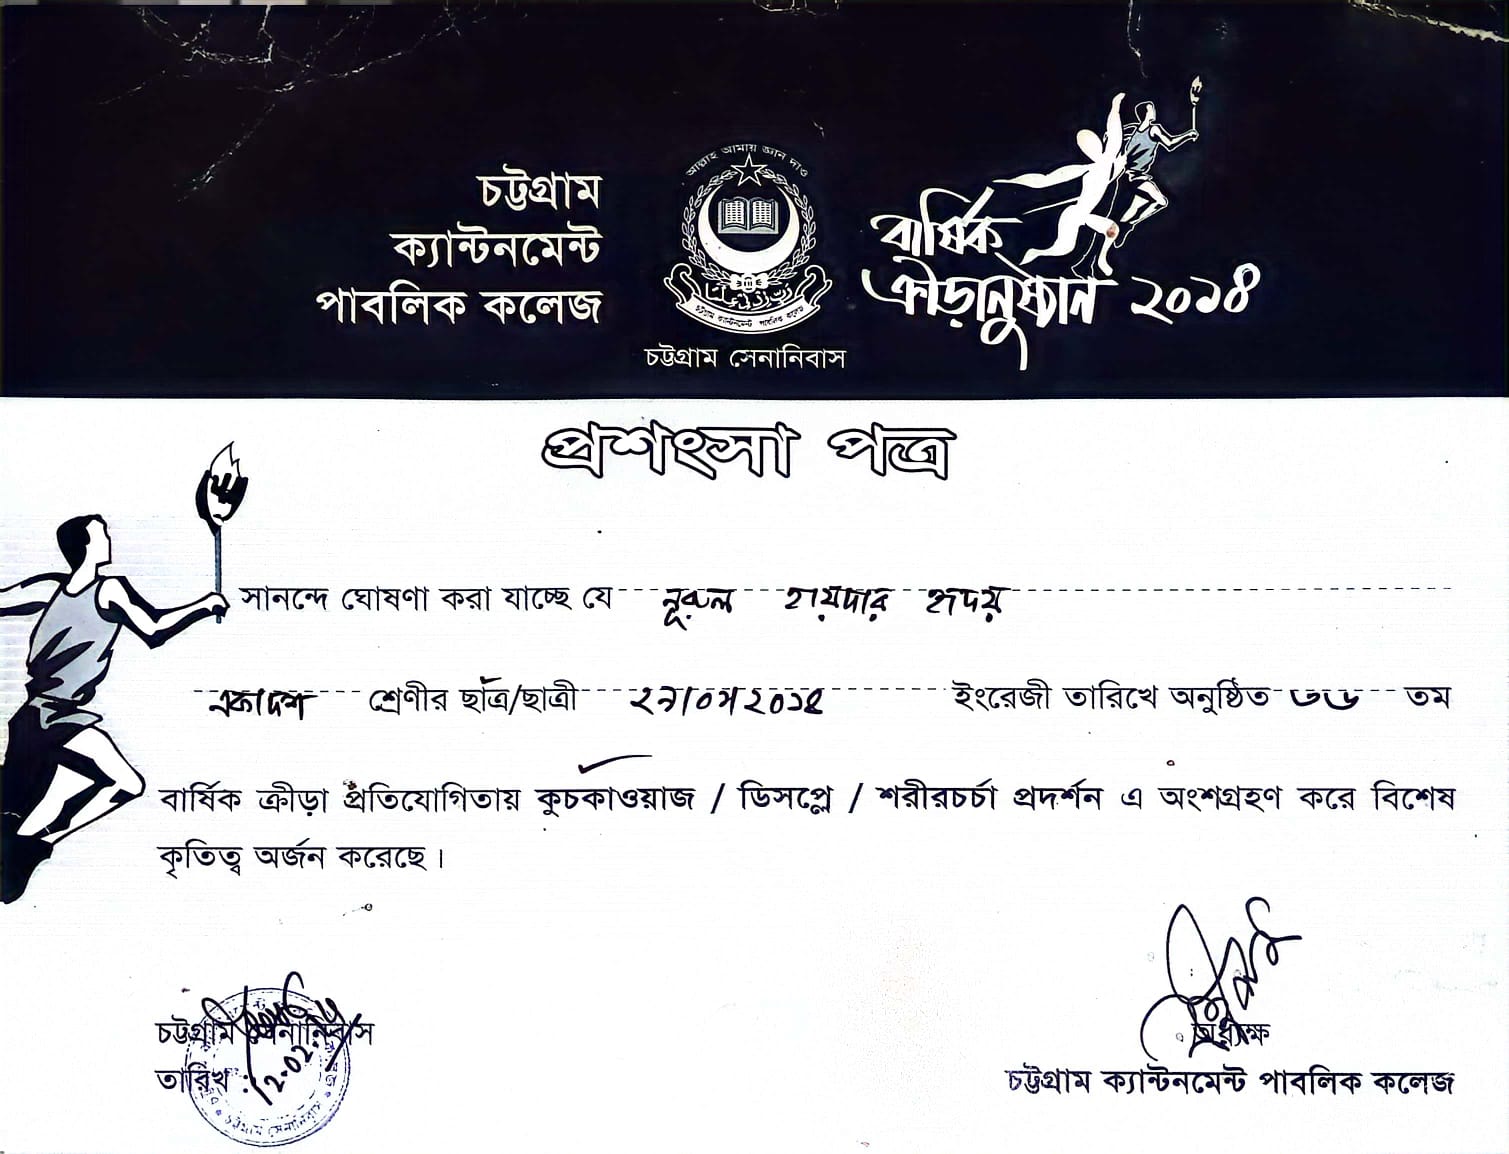 চট্টগ্রাম
ক্যান্টনমেন্ট
পাবলিক কলেজ
আল্লাহ আমায় জ্ঞান দাও
চট্টগ্রাম ক্যান্টনমেন্ট পাবলিক কলেজ
চট্টগ্রাম সেনানিবাস
বার্ষিক
ক্রীড়ানুষ্ঠান ২০১৪
প্রশংসা পত্র
সানন্দে ঘোষণা করা যাচ্ছে যে নূরুল হায়দার হৃদয়
একাদশ শ্রেণীর ছাত্র/ছাত্রী ইংরেজী তারিখে অনুষ্ঠিত ৩৬ তম
বার্ষিক ক্রীড়া প্রতিযোগিতায় কুচকাওয়াজ / ডিসপ্লে / শরীরচর্চা প্রদর্শন এ অংশগ্রহণ করে বিশেষ
কৃতিত্ব অর্জন করেছে।
চট্টগ্রাম সেনানিবাস
তারিখ :
অধ্যক্ষ
চট্টগ্রাম ক্যান্টনমেন্ট পাবলিক কলেজ